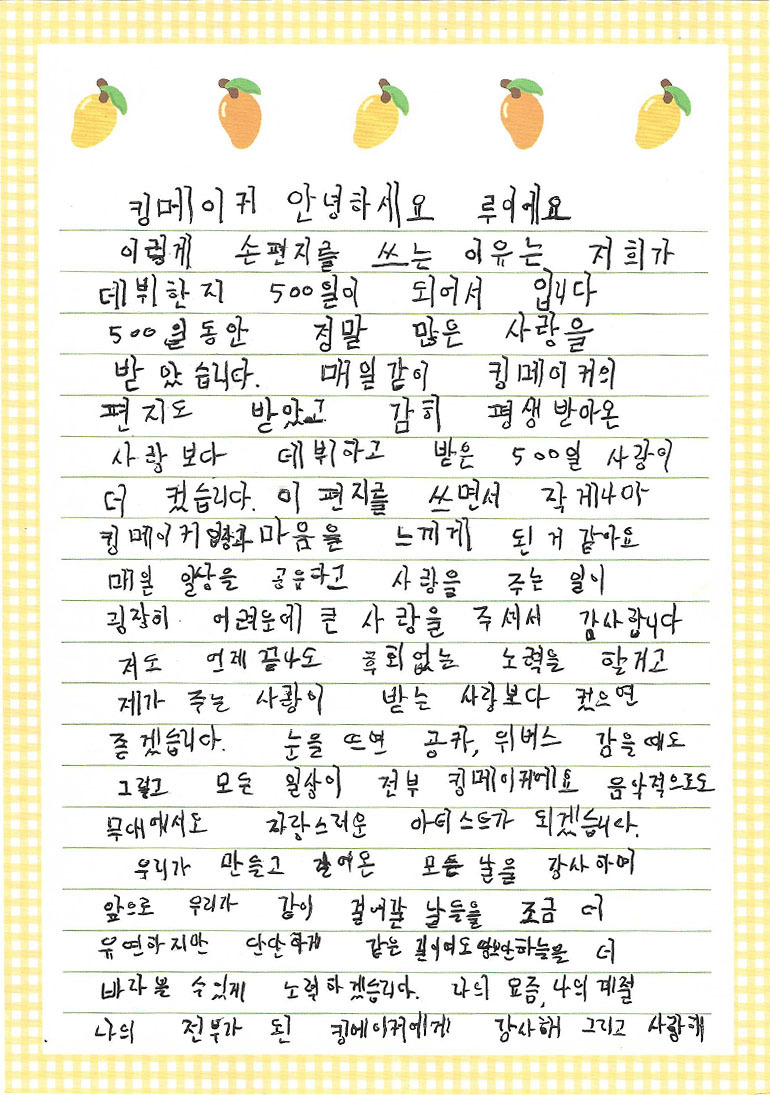 킹메이커 안녕하세요 루이에요
이렇게 손편지를 쓰는 이유는 저희가
데뷔한지 500일이 되어서 입니다
500일동안 정말 많은 사랑을
받았습니다. 매일같이 킹메이커의
편지도 받았고 감히 평생받아온
사랑보다 데뷔하고 받은 500일 사랑이
더 컸습니다. 이 편지를 쓰면서 작게나마
킹메이커 마음을 느끼게 된 거 같아요
매일 일상을 공유하고 사랑을 주는 일이
굉장히 어려운에 큰 사랑을 주셔서 감사합니다
저도 언제 끝나도 후회없는 노력을 할거고
제가 주는 사랑이 받는 사랑보다 컸으면
좋겠습니다. 눈을 뜨면 공카, 위버스 감을때도
그렇고 모든 일상이 전부 킹메이커에요 음악적으로도
무대에서도 자랑스러운 아티스트가 되겠습니다.
우리가 만들고 걸어온 모든 날을 감사하며
앞으로 우리가 같이 걸어갈 날들을 조금 더
유연하지만 단단하게 같은 길이여도 하늘을 더
바라볼 수 있게 노력하겠습니다. 나의 요즘, 나의 계절
나의 전부가 된 킹메이커에게 감사해 그리고 사랑해